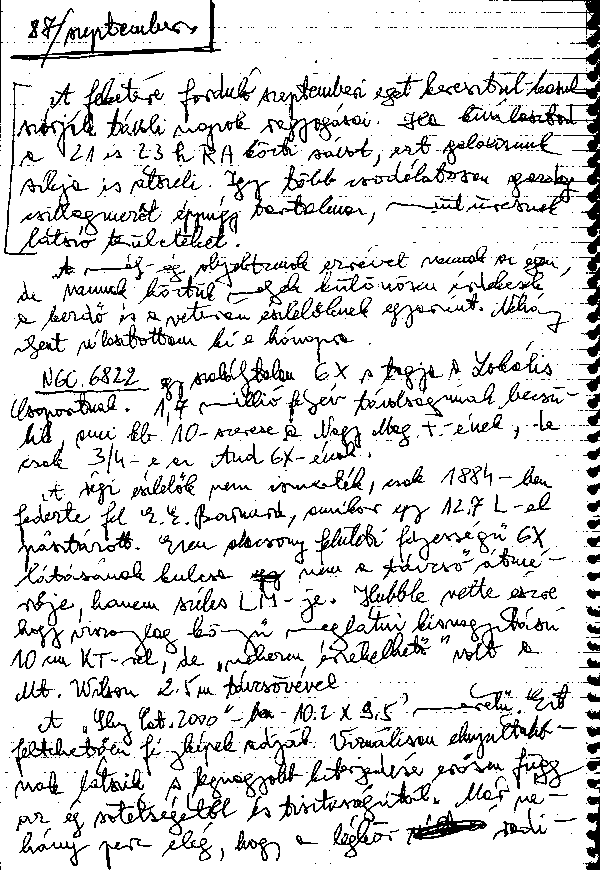 87/szeptember
A feketére forduló szeptemberi eget keresztül-kasul
szórják távoli napok ragyogásai. Ha kiválasztom
a 21 és 23 h RA közti sávot, ezt galaxisunk
síkja is átszeli. Így több csodálatosan gazdag
csillagmezőt éppúgy tartalmaz, mint üresnek
látszó területeket.
A mély-ég objektumok ezrével vannak az égen,
de vannak köztük melyek különösen érdekesek
a kezdő és a veterán észlelőknek egyaránt. Néhány
ilyent választottam ki e hónapra.
NGC. 6822 egy szabálytalan GX s tagja a Lokális
Csoportnak. 1,7 millió fényév távolságunak becsü-
lik, ami kb 10-szerese a Nagy Mag. -ének, de
csak 3/4-e az And GX-ének.
A régi észlelők nem ismerték, csak 1884-ben
fedezte fel E. E. Barnard, amikor egy 12.7 L-el
pásztázott. Ezen alacsony felületi fényességű GX
látásának kulcsa nem a távcső átmé-
rője, hanem széles LM-je. Hubble vette észre
hogy viszonylag könnyű meglátni kisnagyítású
10 cm KT-vel, de „nehezen észlelhető" volt a
Mt. Wilson 2.5 m távcsövével
A „Sky Cat. 2000"-ben 10.2 X 9.5' méretű. Ezt
feltehetően fényképek adják. Vizuálisan elnyúltabb-
nak látszik s legnagyobb kiterjedése erősen függ
az ég sötétségétől és tisztaságától. Már né-
hány perc elég, hogy a légkör